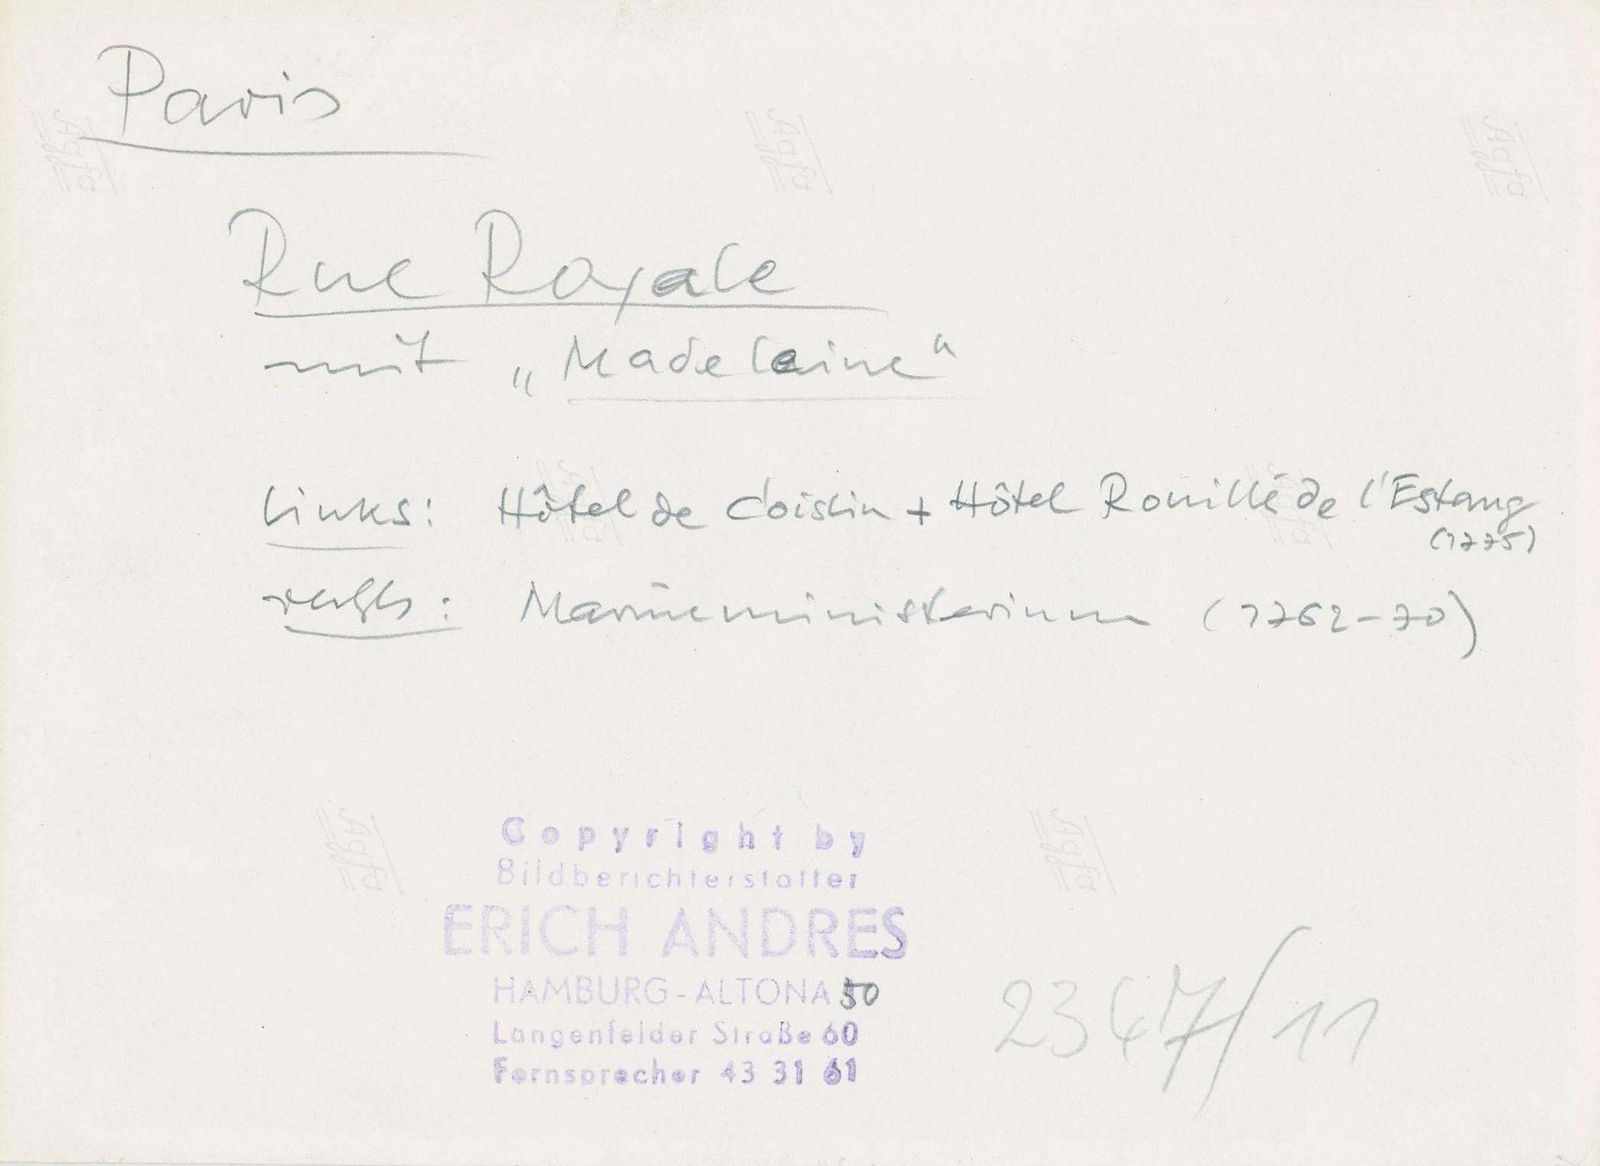 Paris
Rue Royale
mit „Madeleine"
links: Hôtel de Coislin + Hôtel Rouillé de l'Estang
(1775)
rechts: Marineministerium (1762-70)
Copyright by
Bildberichterstatter
ERICH ANDRES
HAMBURG-ALTONA 50
Langenfelder Straße 60
Fernsprecher 43 31 61
2347/11
Agfa
Agfa
Agfa
Agfa
Agfa